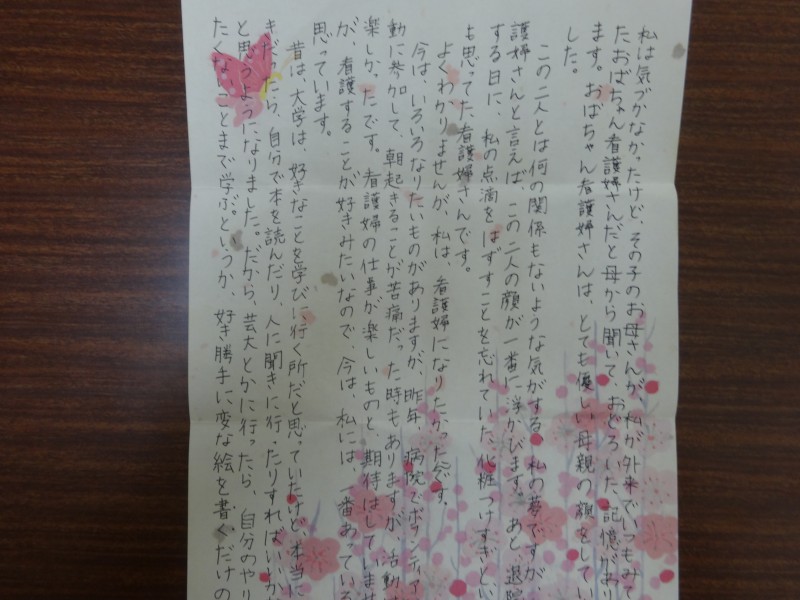 私は気づかなかったけど、その子のお母さんが、私が外来でいつもみて
たおばちゃん看護婦さんだと母から聞いて、おどろいた記憶があり
ます。おばちゃん看護婦さんは、とても優しい母親の顔をしてい
した。
この二人とは何の関係もないような気がする、私の夢ですが、
護婦さんと言えば、この二人の顔が一番に浮かびます。あと、退院
する日に、私の点滴をはずすことを忘れていた、化粧つけすぎとい
も思ってた看護婦さんです。
よくわかりませんが、私は、看護婦になりたかったんです。
今は、いろいろなりたいものがありますが、昨年、病院でボランティア
動に参加して、朝起きることが苦痛だった時もありますが、活動
楽しかったです。看護婦の仕事が楽しいものと、期待はしていませ
が、看護することが好きみたいなので、今は、私には、一番あっている
思っています。
昔は、大学は、好きなことを学びに行く所だと思っていたけど、本当に
きだったら、自分で本を読んだり、人に聞きに行ったりすればいいか
と思うようになりました。だから、芸大とかに行ったら、自分のやり
たくないことまで学ぶというか、好き勝手に変な絵を書くだけの